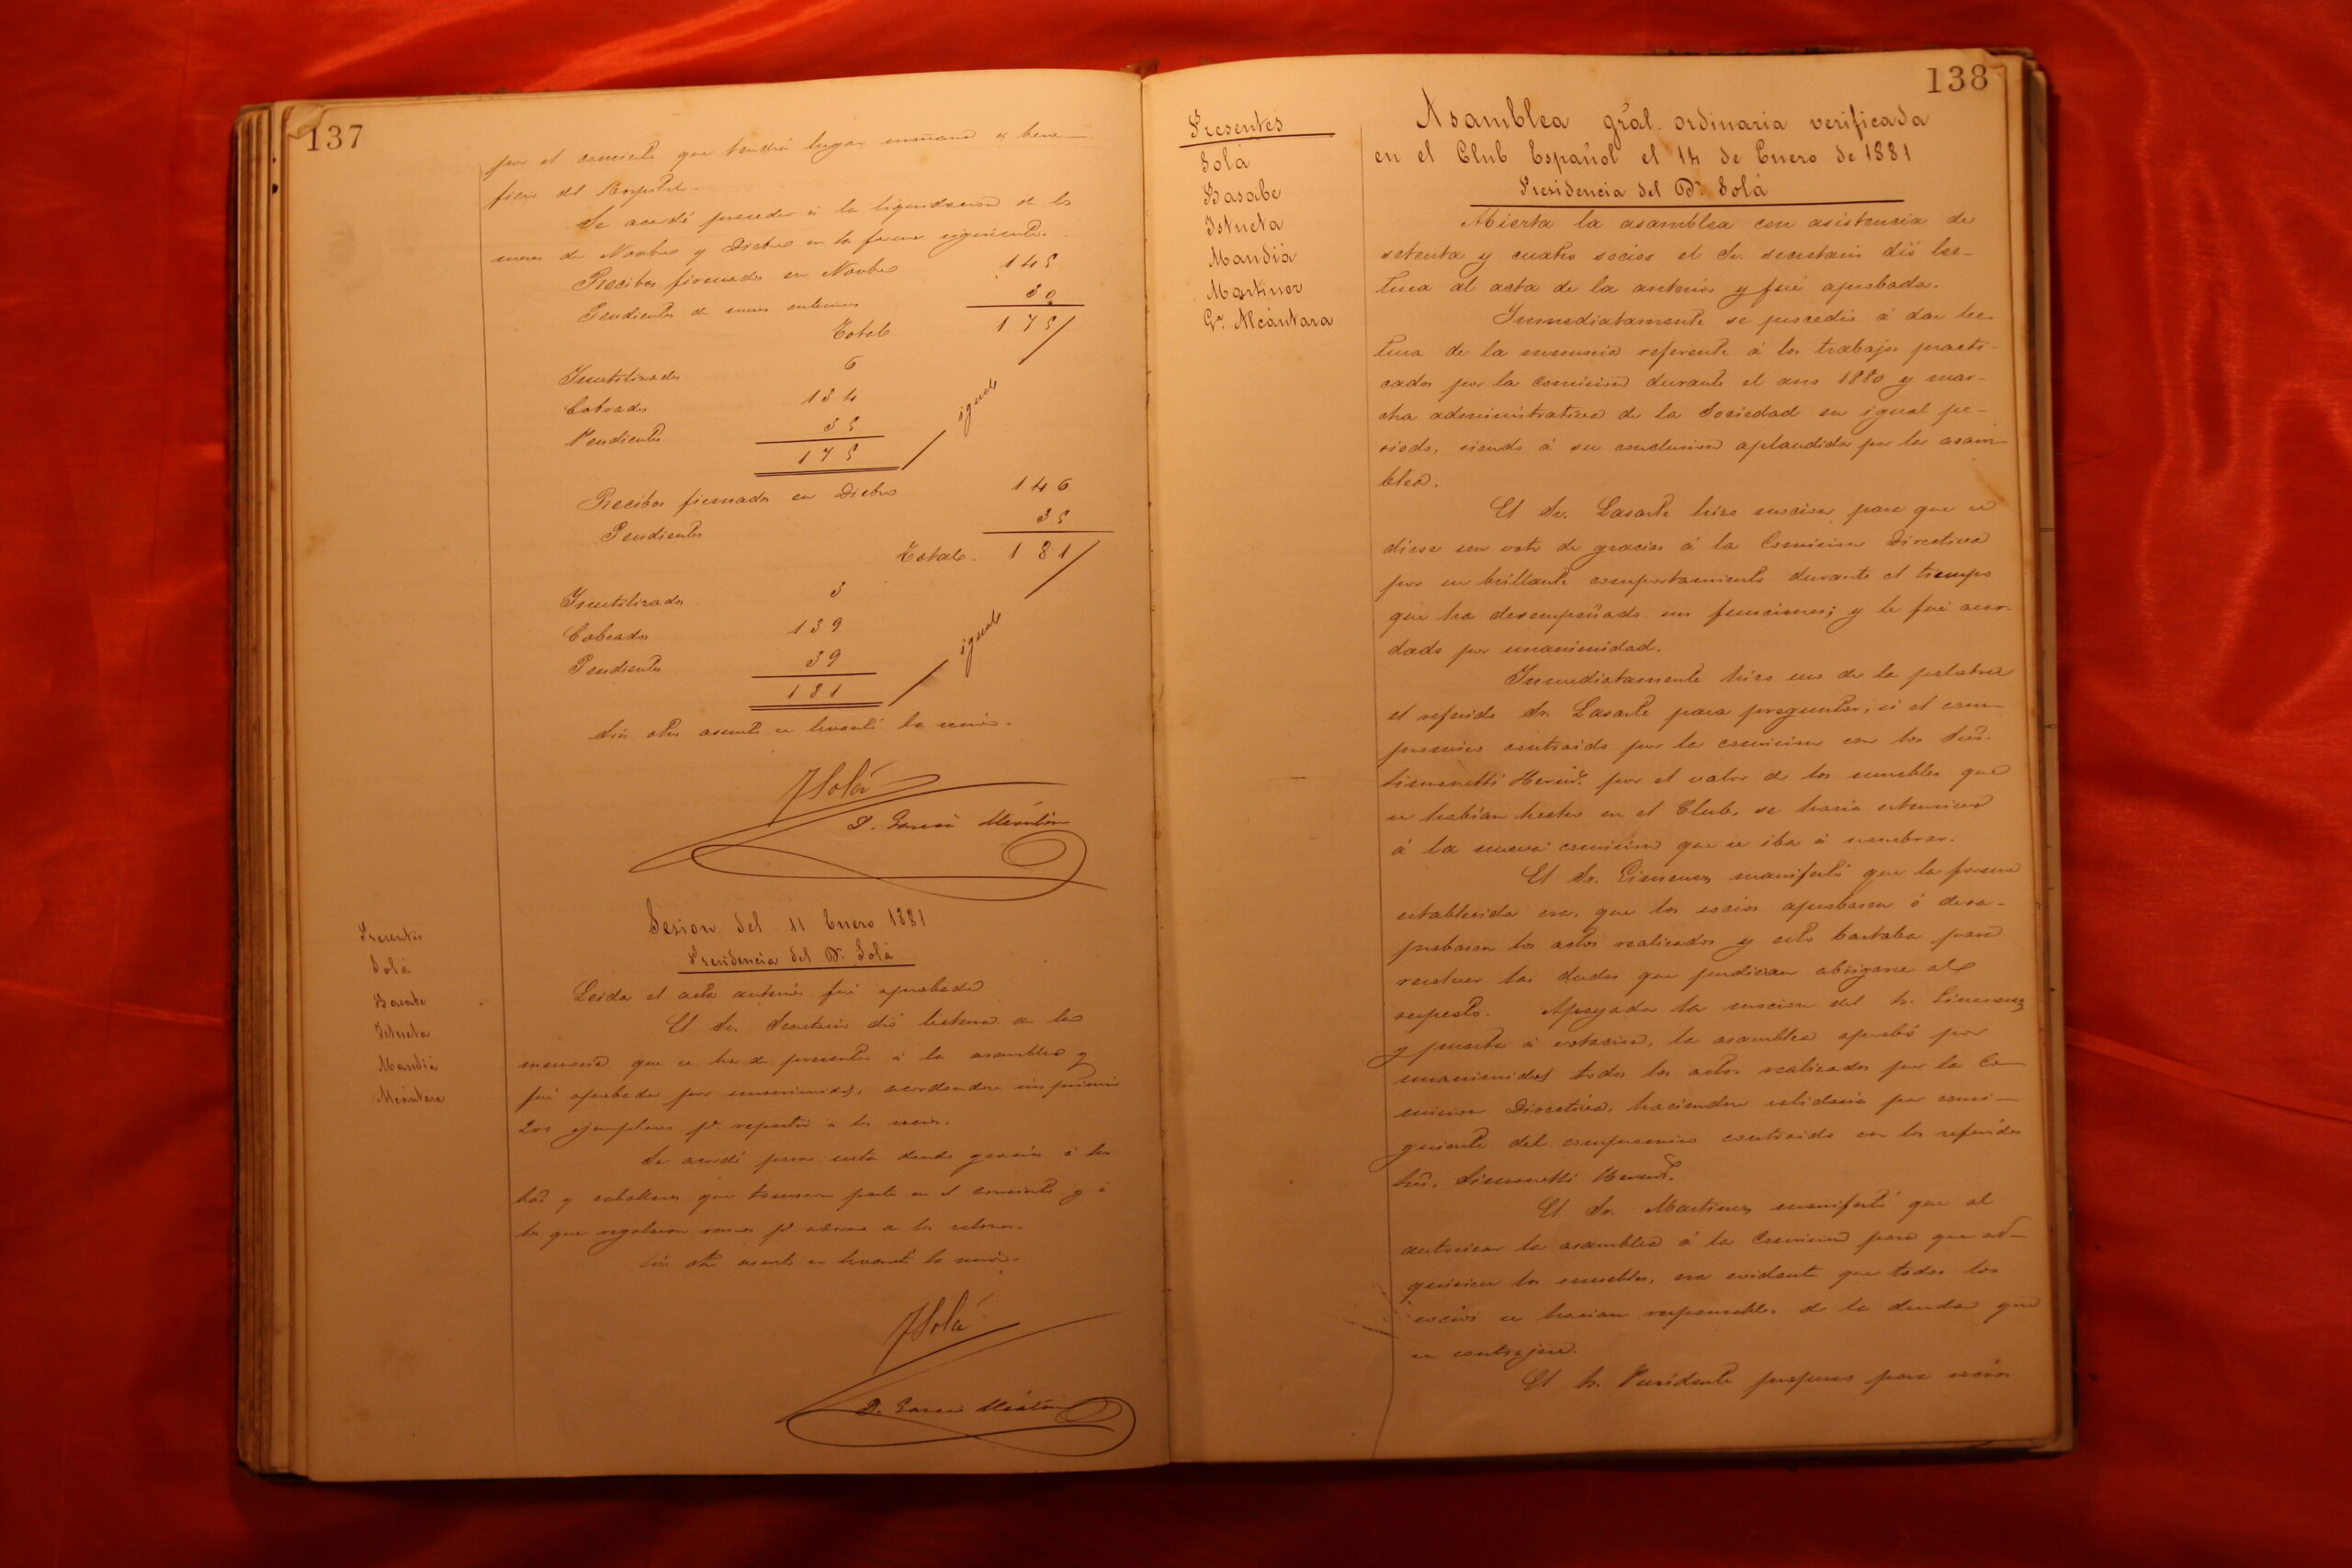 137
por el concierto que tendrá lugar mañana á bene-
ficio del Hospital.
Se acordó proceder á la liquidacion de los
meses de Novbre y Dicbre en la forma siguiente.
Recibos firmados en Novbre 145
Pendientes de meses anteriores 30
Total 175
Inutilizados 6
Cobrados 134
Pendientes 35
175
igual
Recibos firmados en Dicbre 146
Pendientes 35
Total. 181
Inutilizados 3
Cobrados 139
Pendientes 39
181
igual
Sin otro asunto se levantó la sesion.
JSolá
Sesion del 11 Enero 1881
Presidencia del Dr. Solá
Presentes
Solá
Basabe
Istueta
Mandiá
Alcántara
Leida el acta anterior fué aprobada
El Sr. Secretario dió lectura a la
memoria que se ha de presentar á la asamblea y
fué aprobada por unanimidad, acordandose imprimir
200 ejemplares pa. repartir a los socios.
Se acordó pasar nota dando gracias á las
y caballeros que tomaron parte en el concierto y á
los que regalaron
Sin otro asunto se levantó la sesion.
JSolá
138
Presentes
Solá
Basabe
Istueta
Mandiá
Martinez
Ga. Alcántara
Asamblea gral. ordinaria verificada
en el Club Español el 14 de Enero de 1881
Presidencia del Dr. Solá
Abierta la asamblea con asistencia de
setenta y cuatro socios el Sr. secretario dió lec-
tura al acta de la anterior y fué aprobada.
Inmediatamente se procedió á dar lec
tura de la memoria referente á los trabajos practi-
cados por la Comision durante el año 1880 y mar-
cha administrativa de la Sociedad en igual pe-
riodo, siendo á su conclusion aplaudida por la asam-
blea.
El Sr. Lasarte hizo mocion para que se
diese un voto de gracias á la Comision Directiva
por su brillante comportamiento durante el tiempo
que ha desempeñado sus funciones; y le fué acor-
dado por unanimidad.
Inmediatamente hizo uso de la palabra
el referido Sr. Lasarte para preguntar, si el com-
promiso contraido por la comision con los Sres.
Simonetti Hermos. por el valor de los muebles que
se habian hecho en el Club, se haria estensivo
á la nueva comision que se iba á nombrar.
El Sr. Gimenez manifestó que la forma
establecida era, que los socios aprobasen ó desa-
probasen los actos realizados y esto bastaba para
resolver las dudas que pudieran abrigarse al
respecto. Apoyada la mocion del Sr. Gimenez
y puesta á votacion, la asamblea aprobó por
unanimidad todos los actos realizados por la Co-
mision Directiva, haciendose solidaria por consi-
guiente del compromiso contraido con los referidos
Sres. Simonetti Hermos.
El Sr. Martinez manifestó que al
autorizar la asamblea á la Comision para que ad-
quiriese los muebles, era evidente que todos los
socios se hacian responsables de la deuda que
se contrajera.
El Sr. Presidente propuso para socios